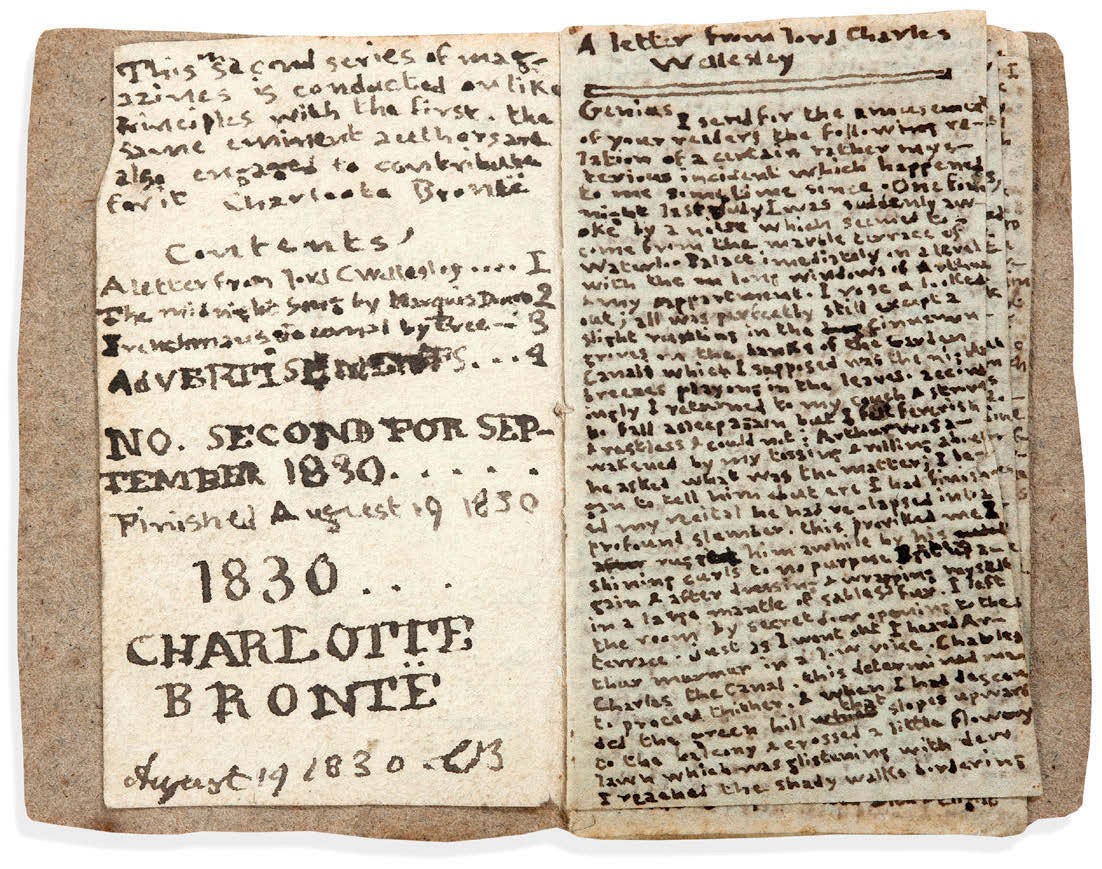 This Second series of mag-
azines is conducted on like
Principles with the first. the
same eminent authors are
also engaged to contribute
for it Charlotte Brontë
Contents
A letter from lord C Wellesley .... I
The midnight Song by Marquis Douro 2
Journal by Tree— 3
ADVERTISEMENTS... 4
NO. SECOND FOR SEP-
TEMBER 1830. . . . . .
Finished August 19 1830
1830 . . .
CHARLOTTE
BRONTË
August 19 1830 CB
A letter from lord Charles
Wellesley
Genius I send for the amusement
of your readers the following re-
lation of a certain rather mys-
terious incident which happened
to me sometime since. One fine
night last July I was suddenly aw-
oke by a noise which seemed to
come from the marble terrace of
Waterloo Palace imediately on a level
with the long windows of Arthur
& my appartment. I rose & looked
out; all was perfectly still except a
slight rustling in the cinnamon
groves on the banks of the Garden
Canal which I supposed was the night
breezes playing in the leaves. Seeing
I returned to my couch &
to fall asleep again but feverish
& restless I could not; Arthur was a-
wakened by my tossing & rolling about
he asked what was the matter; I be-
gan to tell him but ere I had finish-
ed my recital he had relapsed into a
profound slumber this provoked me I
him awhile by his
shining curls to no purpose. a-
gain & after dressing & wrapping myself
in a large mantle of sables fur. I left
the room by secret door opening to the
terrace. Just as I went out I heard Ar-
thur murmer in a low voice. Charles
Charles the Canal. this determined me
to proceed thither. & when I had descen
ded the green hill that slopes upward
to the balcony & crossed a little flowery
lawn which was glistening with dew
I reached the shady walks bordering